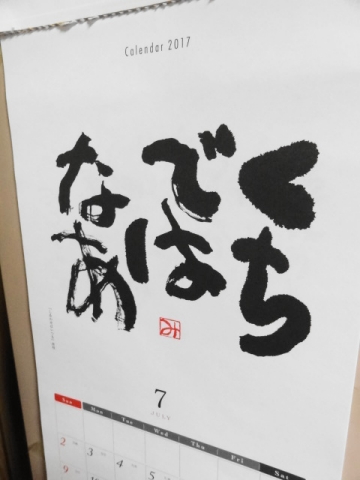 Calendar 2017
くち
では
なあ
み
7
JULY
Sun Mon Tue Wed Thu Fri Sat
2 3 4 5
9 10